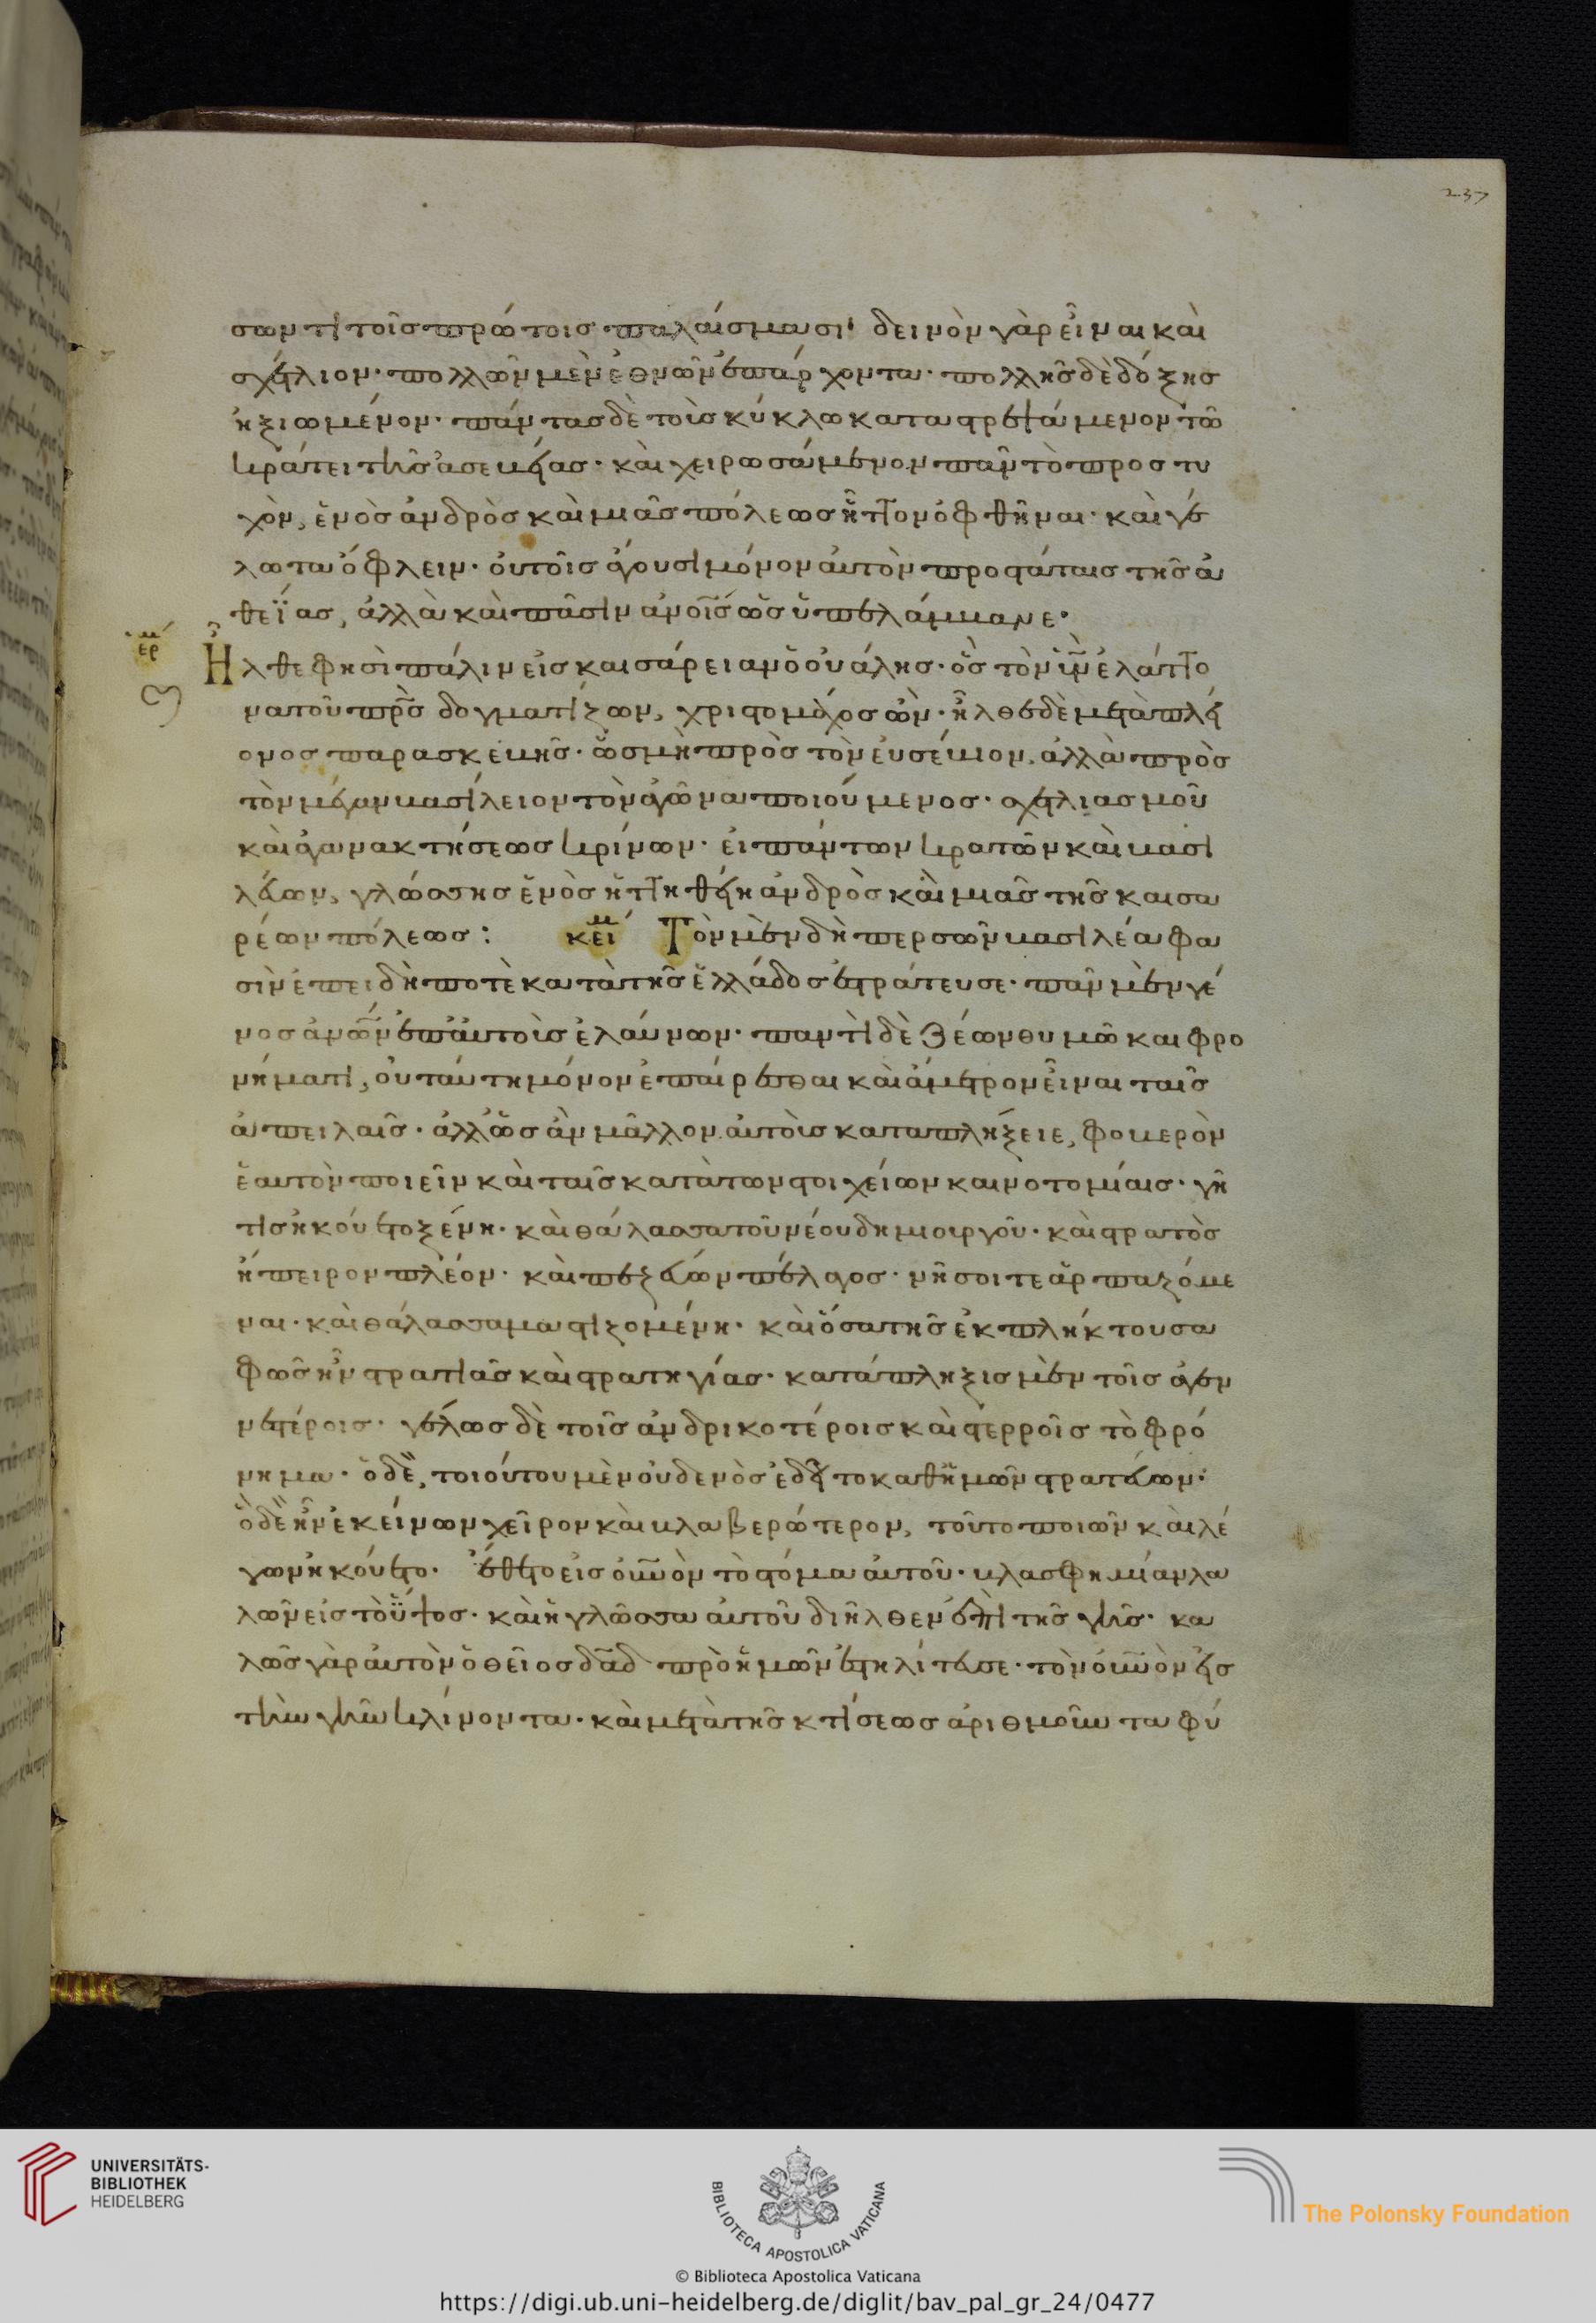 237
σων τι τοῖς πρώτοις παλαίσμασι· δεινὸν γὰρ εἶναι καὶ
σχέτλιον· πολλῶν μὲν ἐθνῶν ὑπάρχοντα· πολλῆς δὲ δόξης
ἠξιωμένον· πάντας δὲ τοὺς κύκλω καταστρεψάμενον τῶ
κράτει τῆς ἀσεβείας· καὶ χειρωσάμενον πᾶν τὸ προστυ
χὸν, ἑνὸς ἀνδρὸς καὶ μιᾶς πόλεως ἧττον ὀφθῆναι· καὶ γέ
λωτα ὄφλειν· οὐ τοῖς ἄγουσι μόνον αὐτὸν προστάταις τῆς ἀ
θεΐας, ἀλλὰ καὶ πᾶσιν ἀνοις ὡς ὑπελάμβανε·
ερμ
Ἦλθε φησὶ πάλιν εἰς καισάρειαν ὁ οὐάλης· ὃς τὸν υν ἐλάττο
να τοῦ προς δογματίζων, χριστομάχος ὢν· ἦλθε δὲ μετὰ πλεί
ονος παρασκευῆς· ὡς μὴ πρὸς τὸν εὐσέβιον, ἀλλὰ πρὸς
τὸν μέγαν βασίλειον τὸν ἀγῶνα ποιούμενος· σχετλιασμοῦ
καὶ ἀγανακτήσεως κρίνων· εἰ πάντων κρατῶν καὶ βασι
λεύων, γλώσσης ἑνὸς ἡττηθείη ἀνδρὸς καὶ μιᾶς τῆς καισα
ρέων πόλεως: κειμ Τὸν μὲν δὴ περσῶν βασιλέα φα
σὶν ἐπειδή ποτε κατὰ τῆς ἑλλάδος ἐστράτευσε· πᾶν μὲν γέ
νος ἀνων ἐπ' αὐτοὺς ἐλαύνων· παντὶ δὲ ζέων θυμῶ και φρο
νήματι, οὐ ταύτη μόνον ἐπαίρεσθαι καὶ ἄμετρον εἶναι ταῖς
ἀπειλαῖς· ἀλλ' ὡς ἂν μᾶλλον αὐτοὺς καταπλήξειε, φοβερὸν
ἑαυτὸν ποιεῖν καὶ ταῖς κατὰ των στοιχείων καινοτομίαις· γῆ
τις ἠκούετο ξένη· καὶ θάλασσα τοῦ νέου δημιουργοῦ· καὶ στρατὸς
ἤπειρον πλέον· καὶ πεζεύων πέλαγος· νῆσοι τε ἁρπαζόμε
ναι· καὶ θάλασσα μαστιζομένη· καὶ ὅσα τῆς ἐκπληκτούσα
φῶς ἦν στρατιᾶς καὶ στρατηγίας· κατάπληξις μὲν τοῖς ἀγεν
νεστέροις· γέλως δὲ τοῖς ἀνδρικοτέροις καὶ στερροῖς τὸ φρό
νημα· ὁ δὲ, τοιούτου μὲν οὐδενὸς ἐδεῖτο καθ' ἡμῶν στρατεύων·
ὃ δὲ ἦν ἐκείνων χεῖρον καὶ βλαβερώτερον, τοῦτο ποιῶν καὶ λέ
γων ἠκούετο· ἔθετο εἰς ουνον τὸ στόμα αὐτοῦ· βλασφημίαν λα
λῶν εἰς τὸ ὕψος· καὶ ἡ γλῶσσα αὐτοῦ διῆλθεν ἐπὶ τῆς γῆς· κα
λῶς γὰρ αὐτὸν ὁ θεῖος δαδ πρὸ ἡμῶν ἐστηλίτευσε· τὸν ουνον εἰς
τὴν γῆν κλίνοντα· καὶ μετὰ τῆς κτίσεως ἀριθμοῦντα φύ
UNIVERSITÄTS-
BIBLIOTHEK
HEIDELBERG
BIBLIOTECA APOSTOLICA VATICANA
The Polonsky Foundation
© Biblioteca Apostolica Vaticana
https://digi.ub.uni-heidelberg.de/diglit/bav_pal_gr_24/0477